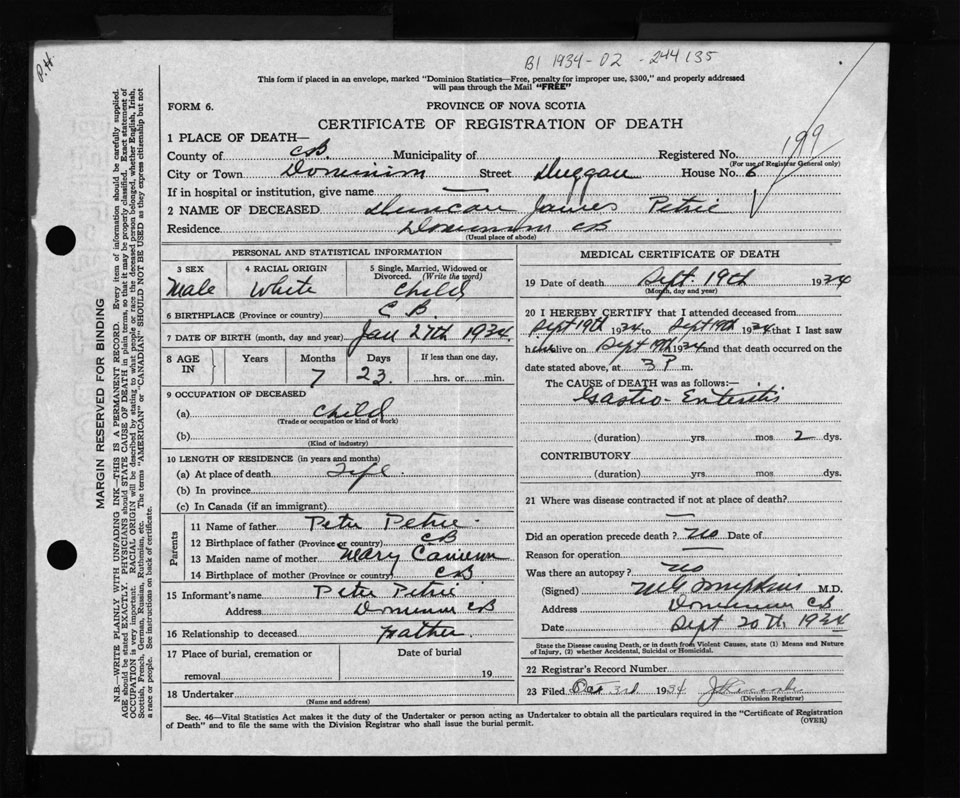 P.H.
B1 1934-02-244135
This form if placed in an envelope, marked "Dominion Statistics—Free, penalty for improper use, $300," and properly addressed
will pass through the Mail "FREE"
FORM 6.
PROVINCE OF NOVA SCOTIA
CERTIFICATE OF REGISTRATION OF DEATH
1 PLACE OF DEATH—
199
County of C.B. Municipality of Registered No.
(For use of Registrar General only)
City or Town Dominion Street Duggan House No. 6
If in hospital or institution, give name —
2 NAME OF DECEASED Duncan James Petrie
Residence Dominion CB
(Usual place of abode)
PERSONAL AND STATISTICAL INFORMATION
3 SEX Male
4 RACIAL ORIGIN White
5 Single, Married, Widowed or Divorced. (Write the word) Child
6 BIRTHPLACE (Province or country) C B.
7 DATE OF BIRTH (month, day and year) Jan 27th 1934
8 AGE IN Years Months 7 Days 23. If less than one day, hrs. or min.
9 OCCUPATION OF DECEASED
(a) Child
(Trade or occupation or kind of work)
(b)
(Kind of industry)
10 LENGTH OF RESIDENCE (in years and months)
(a) At place of death Life
(b) In province
(c) In Canada (if an immigrant)
Parents
11 Name of father Peter Petrie
12 Birthplace of father (Province or country) CB
13 Maiden name of mother Mary Cameron
14 Birthplace of mother (Province or country) CB.
15 Informant's name Peter Petrie
Address Dominion CB
16 Relationship to deceased Father.
17 Place of burial, cremation or removal Date of burial 19
18 Undertaker
(Name and address)
MEDICAL CERTIFICATE OF DEATH
19 Date of death Sept 19th 1934
(Month, day and year)
20 I HEREBY CERTIFY that I attended deceased from
Sept 19th 1934 to Sept 19th 1934 that I last saw
him alive on Sept 19th 1934 and that death occurred on the
date stated above, at 3 P m.
The CAUSE of DEATH was as follows:—
Gastro-Enteritis
(duration) yrs mos 2 dys.
CONTRIBUTORY
(duration) yrs mos dys.
21 Where was disease contracted if not at place of death?
—
Did an operation precede death? No Date of
Reason for operation —
Was there an autopsy? No
(Signed) M.G. Tompkins M.D.
Address Dominion CB
Date Sept 20th 1934
State the Disease causing Death, or in death from Violent Causes, state (1) Means and Nature
of Injury, (2) whether Accidental, Suicidal or Homicidal.
22 Registrar's Record Number
23 Filed Oct 3rd 1934
(Division Registrar)
Sec. 46—Vital Statistics Act makes it the duty of the Undertaker or person acting as Undertaker to obtain all the particulars required in the "Certificate of Registration
of Death" and to file the same with the Division Registrar who shall issue the burial permit.
(OVER)
MARGIN RESERVED FOR BINDING
N.B.—WRITE PLAINLY WITH UNFADING INK—THIS IS A PERMANENT RECORD. Every item of information should be carefully supplied.
AGE should be stated EXACTLY. PHYSICIANS should STATE CAUSE OF DEATH in plain terms, so that it may be properly classified. Exact statement of
OCCUPATION is very important. RACIAL ORIGIN will be described by stating to what people or race the deceased person belonged, whether English, Irish,
Scottish, French, German, Russian, Ruthenian, etc. The terms "AMERICAN" or "CANADIAN" SHOULD NOT BE USED as they express citizenship but not
a race or people. See instructions on back of certificate.